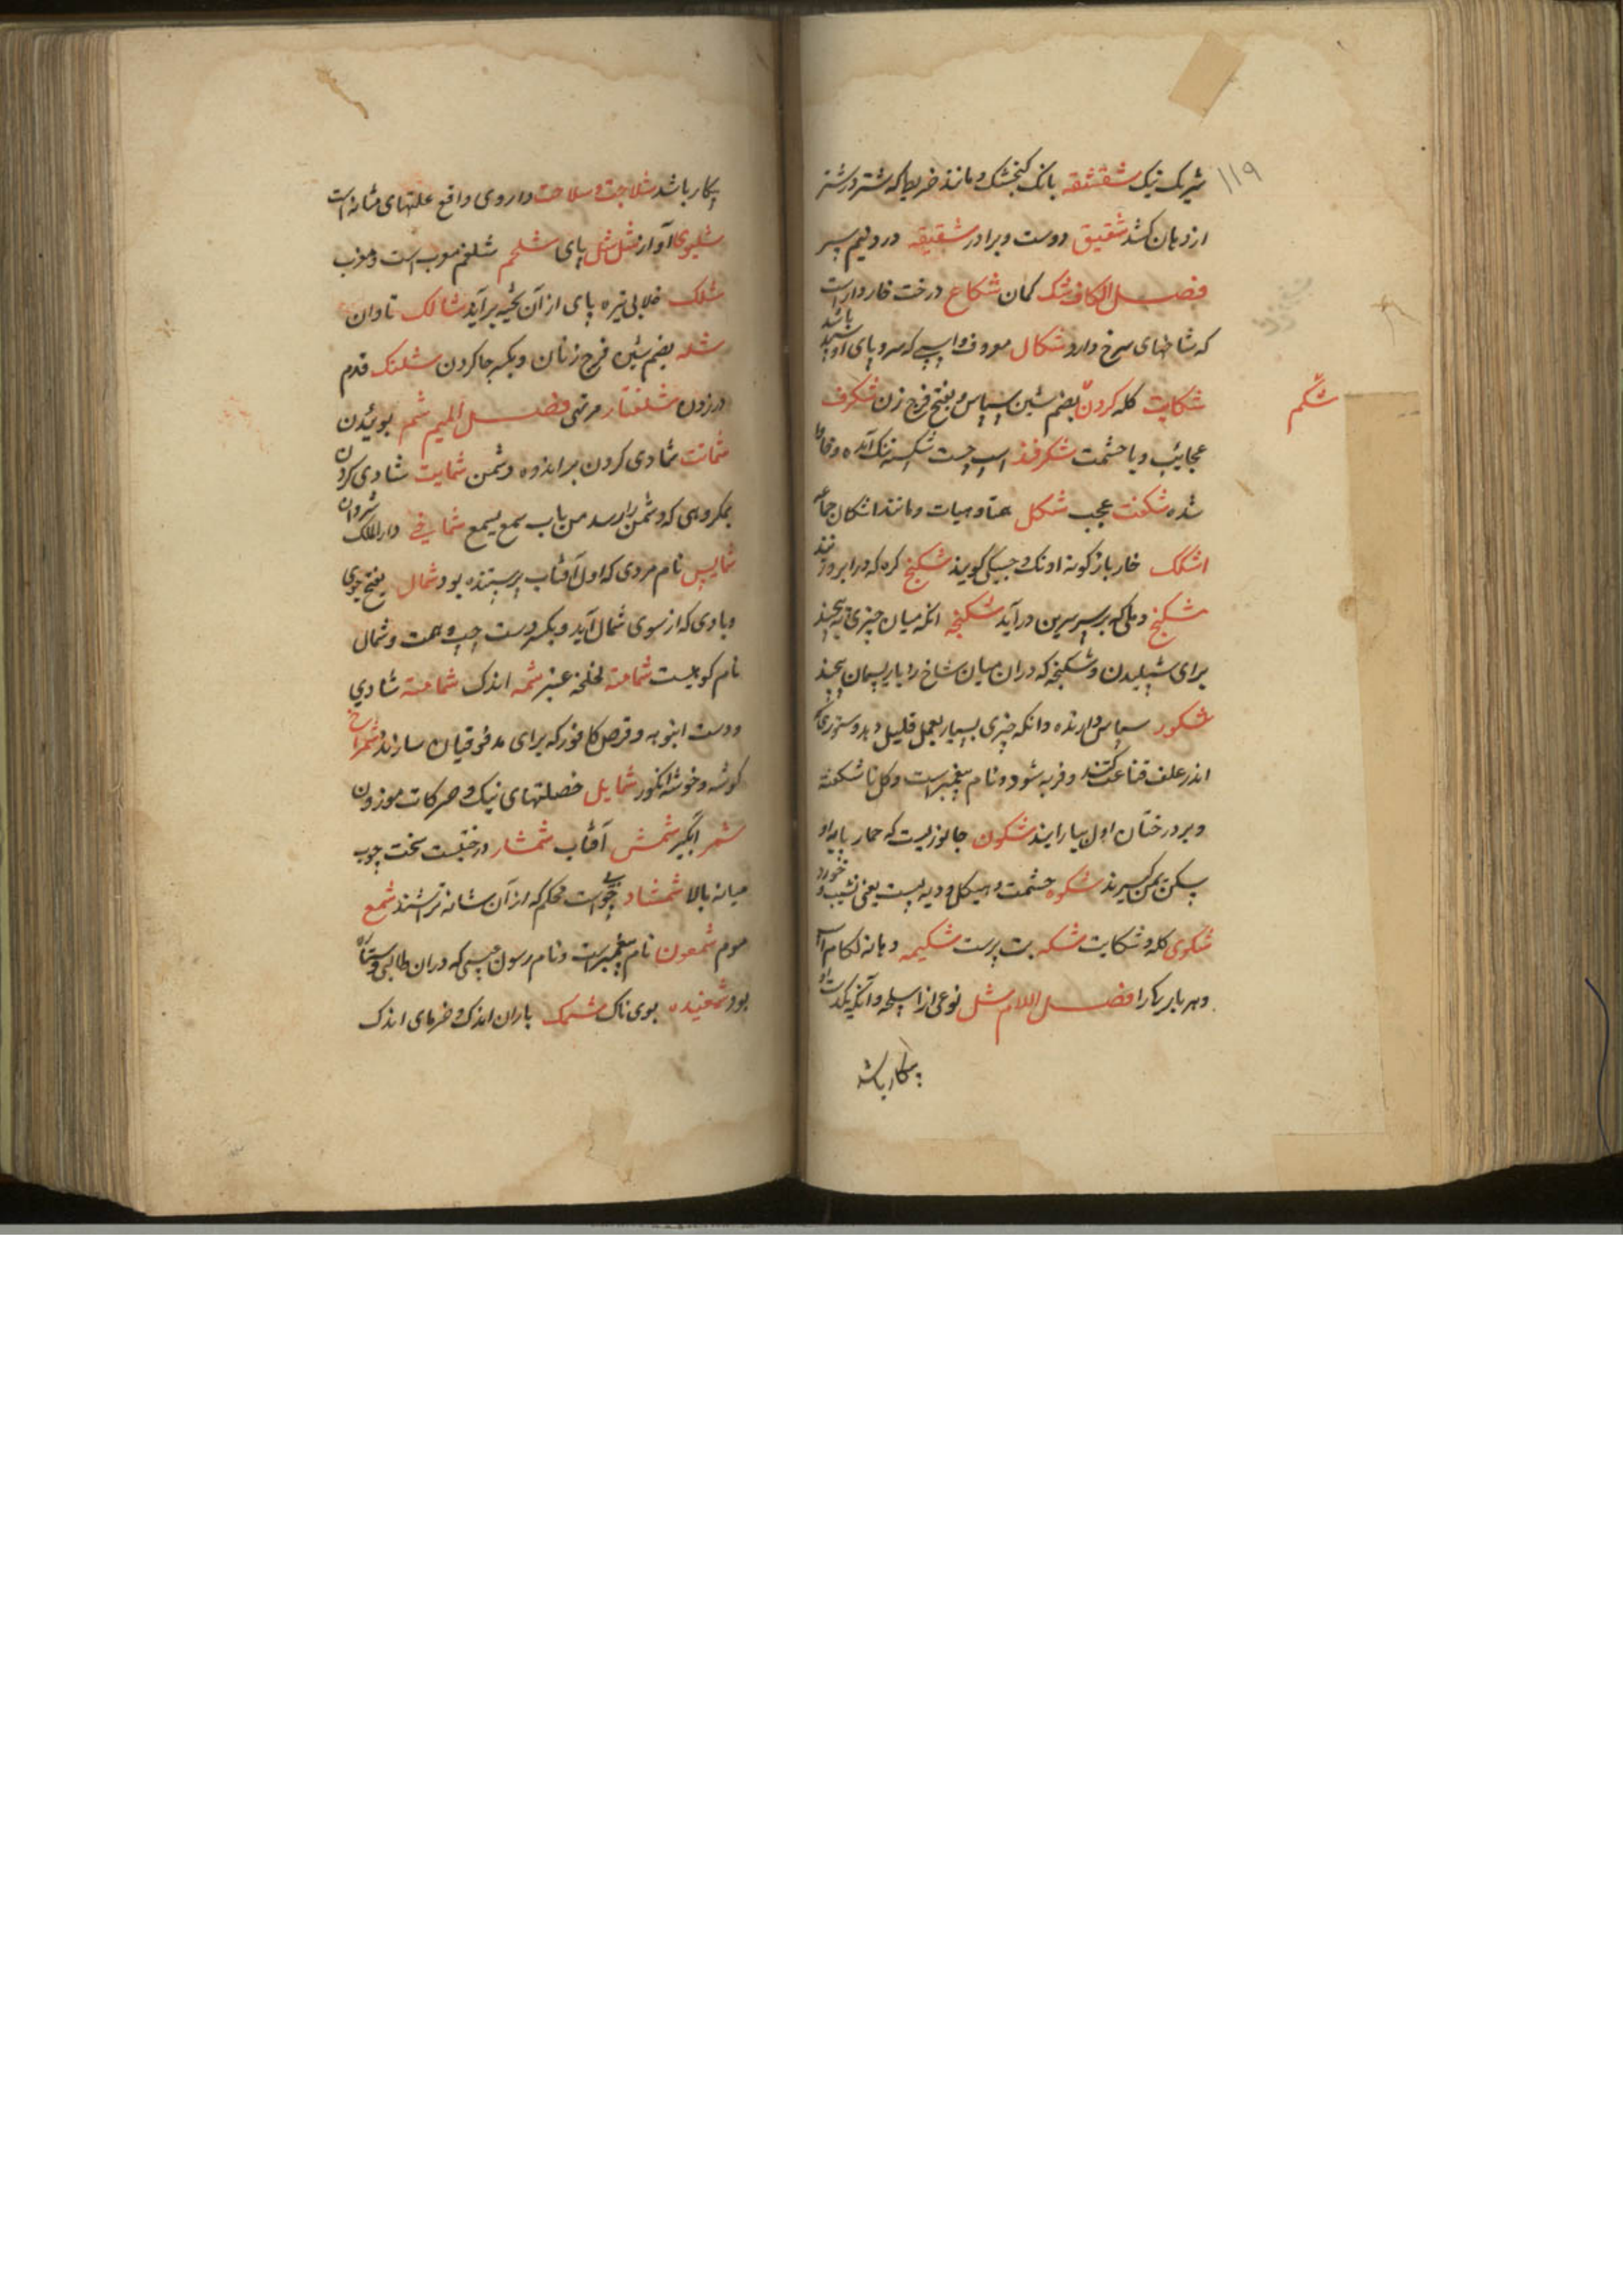 ۱۱۹
شریک نیک شقشقه بانک کنجشک و مانند خریطه که شتر در شتر
از دهان کشد شقیق دوست و برادر شقیقه درد نیم سر
فصل الکاف شک کمان شکاع درخت خاردار است
که شاخهای سرخ دارد شکال معروف و اسپی که سه پای او سپید باشد
شکم
شکایت کله کردن بضم شین سپاس و بفتح فرج زن شکرف
عجایب و با حشمت شکرفند اسپ جست شکسته
شده شکفت عجب شکل همتا و هیات و مانند اشکال جماعه
اشکک خار بازکونه شکنج کره که در ابرو زنند
شکنج دملی که بر سر سرین درآید شکنجه انکه میان چیزی
برای شپلیدن و شکنجه که دران میان شاخ را با ریسمان پیچند
شکور سپاس دارنده و انکه چیزی بسیار بعمل قلیل دهد و ستوری که
اندر علف قناعت کند و فربه شود و نام پیغمبریست و کل ناشکفته
و بر درختان اول بیارایند شکون جانوریست که
شکوه حشمت و هیکل و دیه پست یعنی نشیب
شکوی کله و شکایت شکه بت پرست شکیمه دهانه لکام
و هر باریک را فصل اللام شل نوعی از اسلحه و آنکه یکدست او
بیکار باشد
بیکار باشد شلاجت و سلاحت داروی دافع علتهای مثانه است
شلپوی آواز شل شل پای شلجم شلغم معرب است
شلک خلابی تیره پای از آن بحیله برآید شالک تاوان
شله بضم شین فرج زنان و بکسر جا کردن شلنک قدم
در زدن شلغتار مرتهی فصل المیم شم بوئیدن
شماتت شادی کردن بر اندوه دشمن شمایت شادی کردن
بمکروهی که دشمن را رسد من باب سمع یسمع شماخی دار الملک شروان
شماپس نام مردی که اول آفتاب پرستنده بود شمال بفتح جوی
و بادی که از سوی شمال آید و بکسر دست چپ و شمال
نام کوهیست شمامه لخلخه عنبر شمه اندک شماتة شادی
و دست انبویه و قرص کافور که برای مدفوقیان سازند شمراخ
کوشه و خوشه انکور شمایل خصلتهای نیک و حرکات موزون
شمر آبگیر شمش آفتاب شمشار درختیست سخت چوب
میانه بالا شمشاد چوبیست محکم که از آن شانه تراشند شمع
موم شمعون نام پیغمبریست و نام رسول عیسی که دران
بود شمغنده بوی ناک شمک باران اندک و خرمای اندک